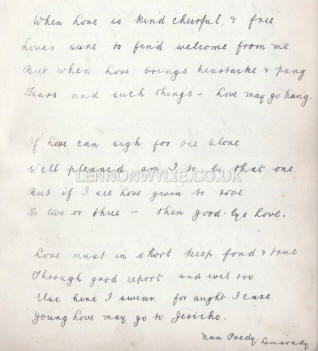 When Love is kind cheerful & free
Loves sure to find welcome from me.
But when Love brings heartache & pang
Tears and such things - Love may go hang.
If Love can sigh for one alone
Well pleased am I to be that one
But if I see Love given to rove
To two or three - then good-bye Love.
LENNONWYLIE.CO.UK
Love must in short keep fond & true
Through good report and evil too.
Else here I swear for aught I care.
Young Love may go to Jericho.
Nan Predy Limavady